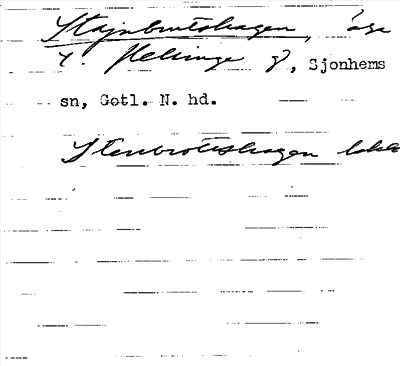 Stajnbrutshagen, äga
t. Hellinge g, Sjonhems
sn, Gotl. N. hd.
Stenbrottshagen